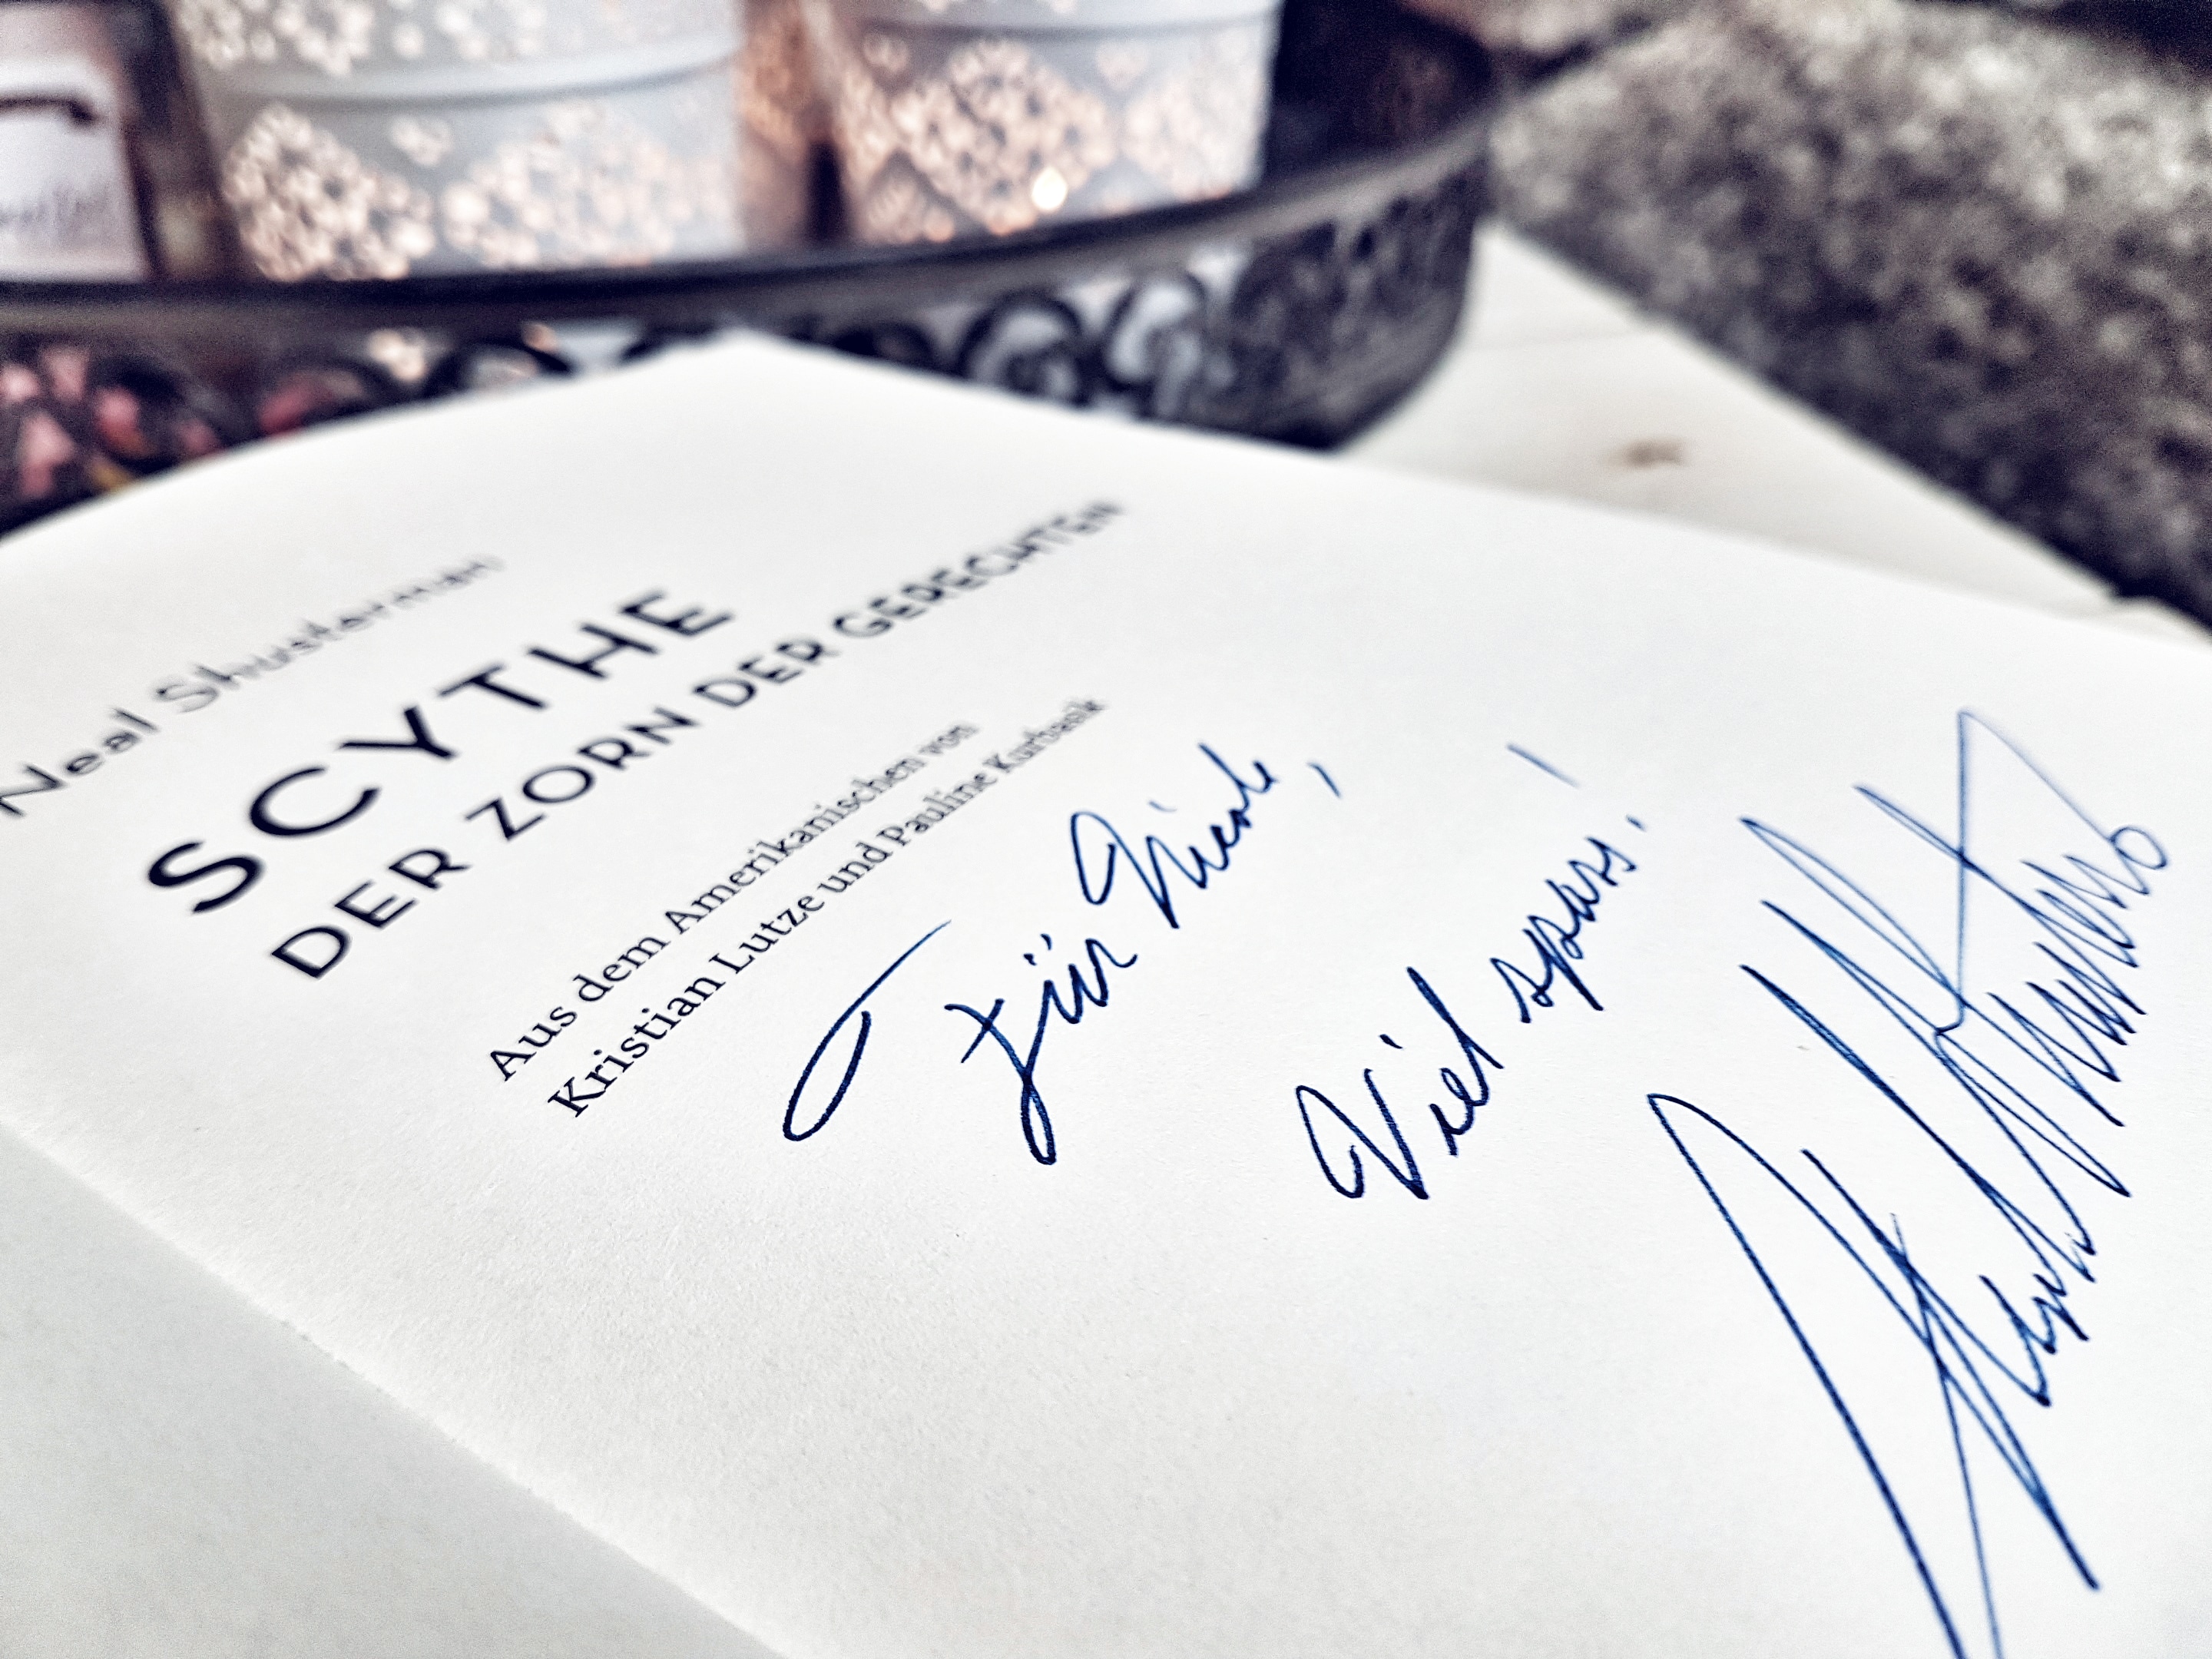 Neal Shusterman
SCYTHE
DER ZORN DER GERECHTEN
Aus dem Amerikanischen von
Kristian Lutze und Pauline Kurbasik
Für Nicole,
Viel spass!